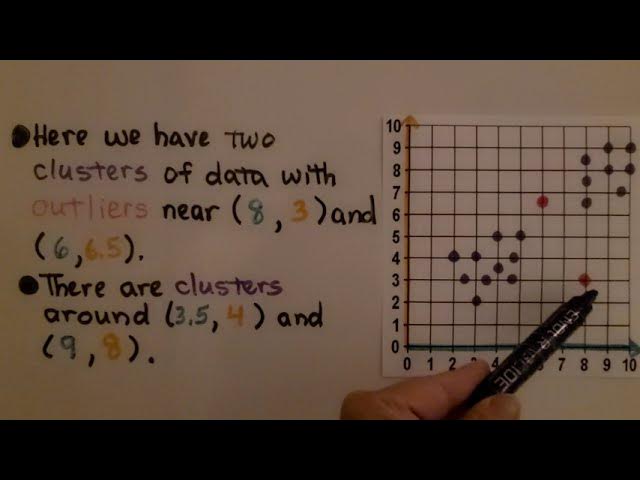 Here we have two
clusters of data with
outliers near (8, 3) and
(6, 6.5).
There are clusters
around (3.5, 4) and
(9, 8).
10
9
8
7
6
5
4
3
2
1
0
0 1 2 3 4 5 6 7 8 9 10